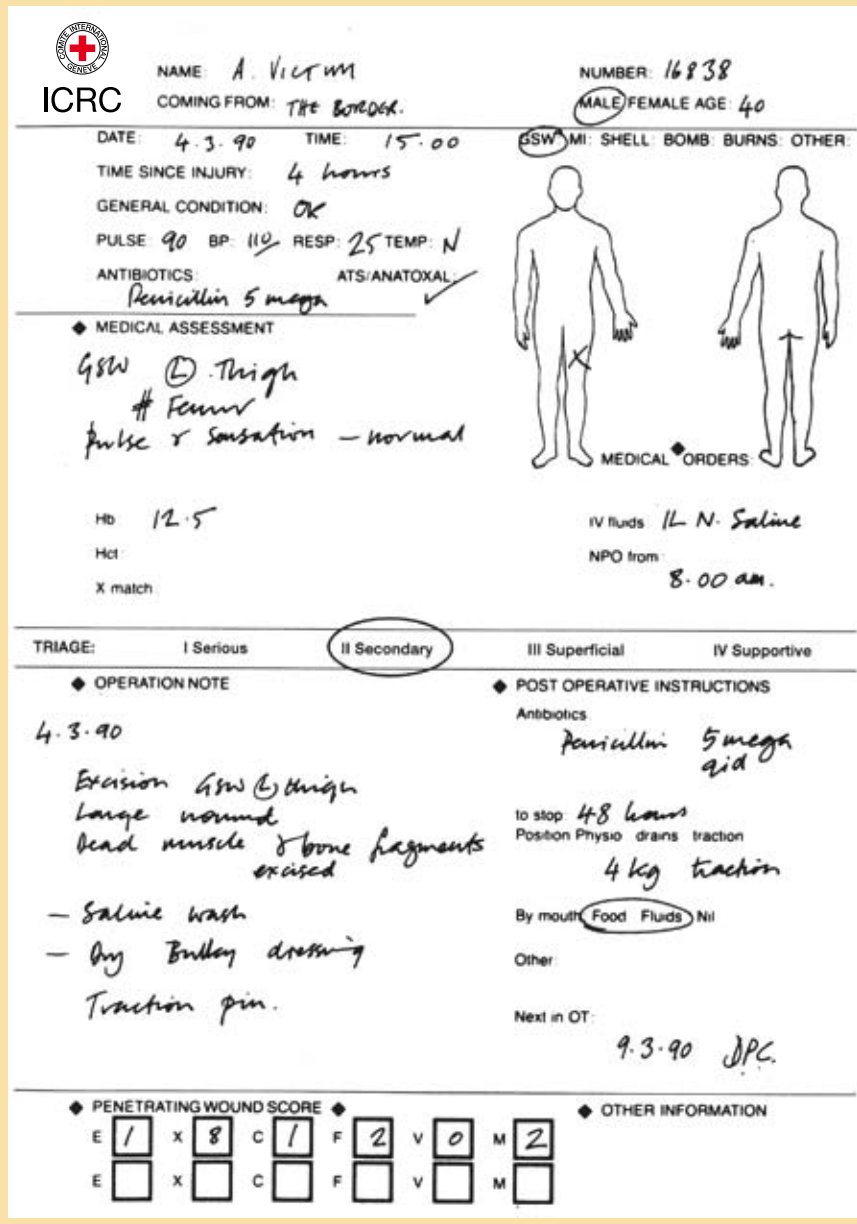 COMITE INTERNATIONAL GENEVE
ICRC
NAME: A. VICTIM
NUMBER: 16838
COMING FROM: THE BORDER.
MALE FEMALE AGE: 40
DATE: 4.3.90 TIME: 15.00
GSW MI: SHELL: BOMB: BURNS: OTHER:
TIME SINCE INJURY: 4 hours
GENERAL CONDITION: OK
PULSE: 90 BP: 110/ RESP: 25 TEMP: N
ANTIBIOTICS: ATS/ANATOXAL: ✓
Penicillin 5 mega
◆ MEDICAL ASSESSMENT
GSW Ⓛ Thigh
# Femur
Pulse & Sensation – normal
Hb 12.5
Hct:
X match:
◆ MEDICAL ORDERS:
IV fluids 1L N. Saline
NPO from:
8.00 am.
TRIAGE: I Serious II Secondary III Superficial IV Supportive
◆ OPERATION NOTE
4.3.90
Excision GSW Ⓛ thigh
Large wound
Dead muscle & bone fragments
excised
– Saline wash
– Dry Bulky dressing
Traction pin.
◆ POST OPERATIVE INSTRUCTIONS
Antibiotics
Penicillin 5 mega
qid
to stop: 48 hours
Position Physio drains traction
4 kg traction
By mouth: Food Fluids Nil
Other:
Next in OT:
9.3.90 DPC.
◆ PENETRATING WOUND SCORE ◆
E 1 X 8 C 1 F 2 V 0 M 2
E X C F V M
◆ OTHER INFORMATION